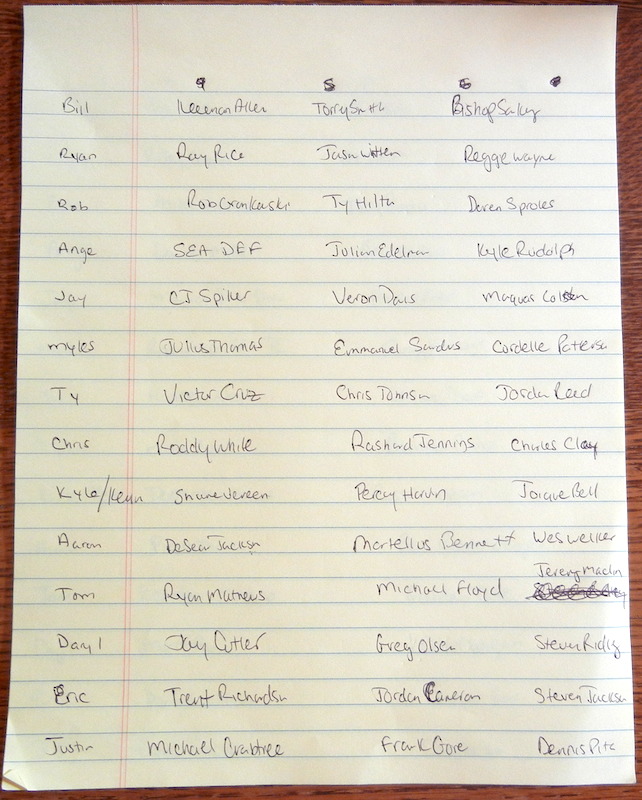 4 5 6
Bill Keenan Allen Torry Smith Bishop Sankey
Ryan Ray Rice Jasn Witten Reggie Wayne
Rob Rob Gronkauski Ty Hiltn Daren Sproles
Ange SEA DEF Julian Edelman Kyle Rudolph
Jay CJ Spiller Veron Davis Maquas Colsten
Myles Julius Thomas Emmanuel Sandus Cordelle Patterson
Ty Victor Cruz Chris Johnsn Jordan Reed
Chris Roddy White Rashard Jennings Charles Clay
Kyle/Kevin Shane Vereen Percy Harvin Joique Bell
Aaron DeSean Jackson Martellus Bennett Wes Welker
Jeremy Maclin
Tom Ryan Mathews Michael Floyd
Daryl Jay Cutler Greg Olsen Steven Ridley
Eric Trent Richardsn Jordan Cameron Steven Jackson
Justin Michael Crabtree Frank Gore Dennis Pita